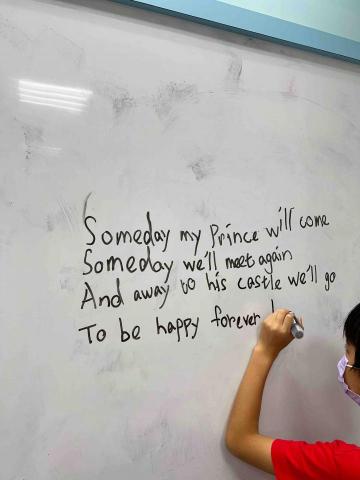 Someday my Prince will come
Someday we'll meet again
And away to his castle we'll go
To be happy forever